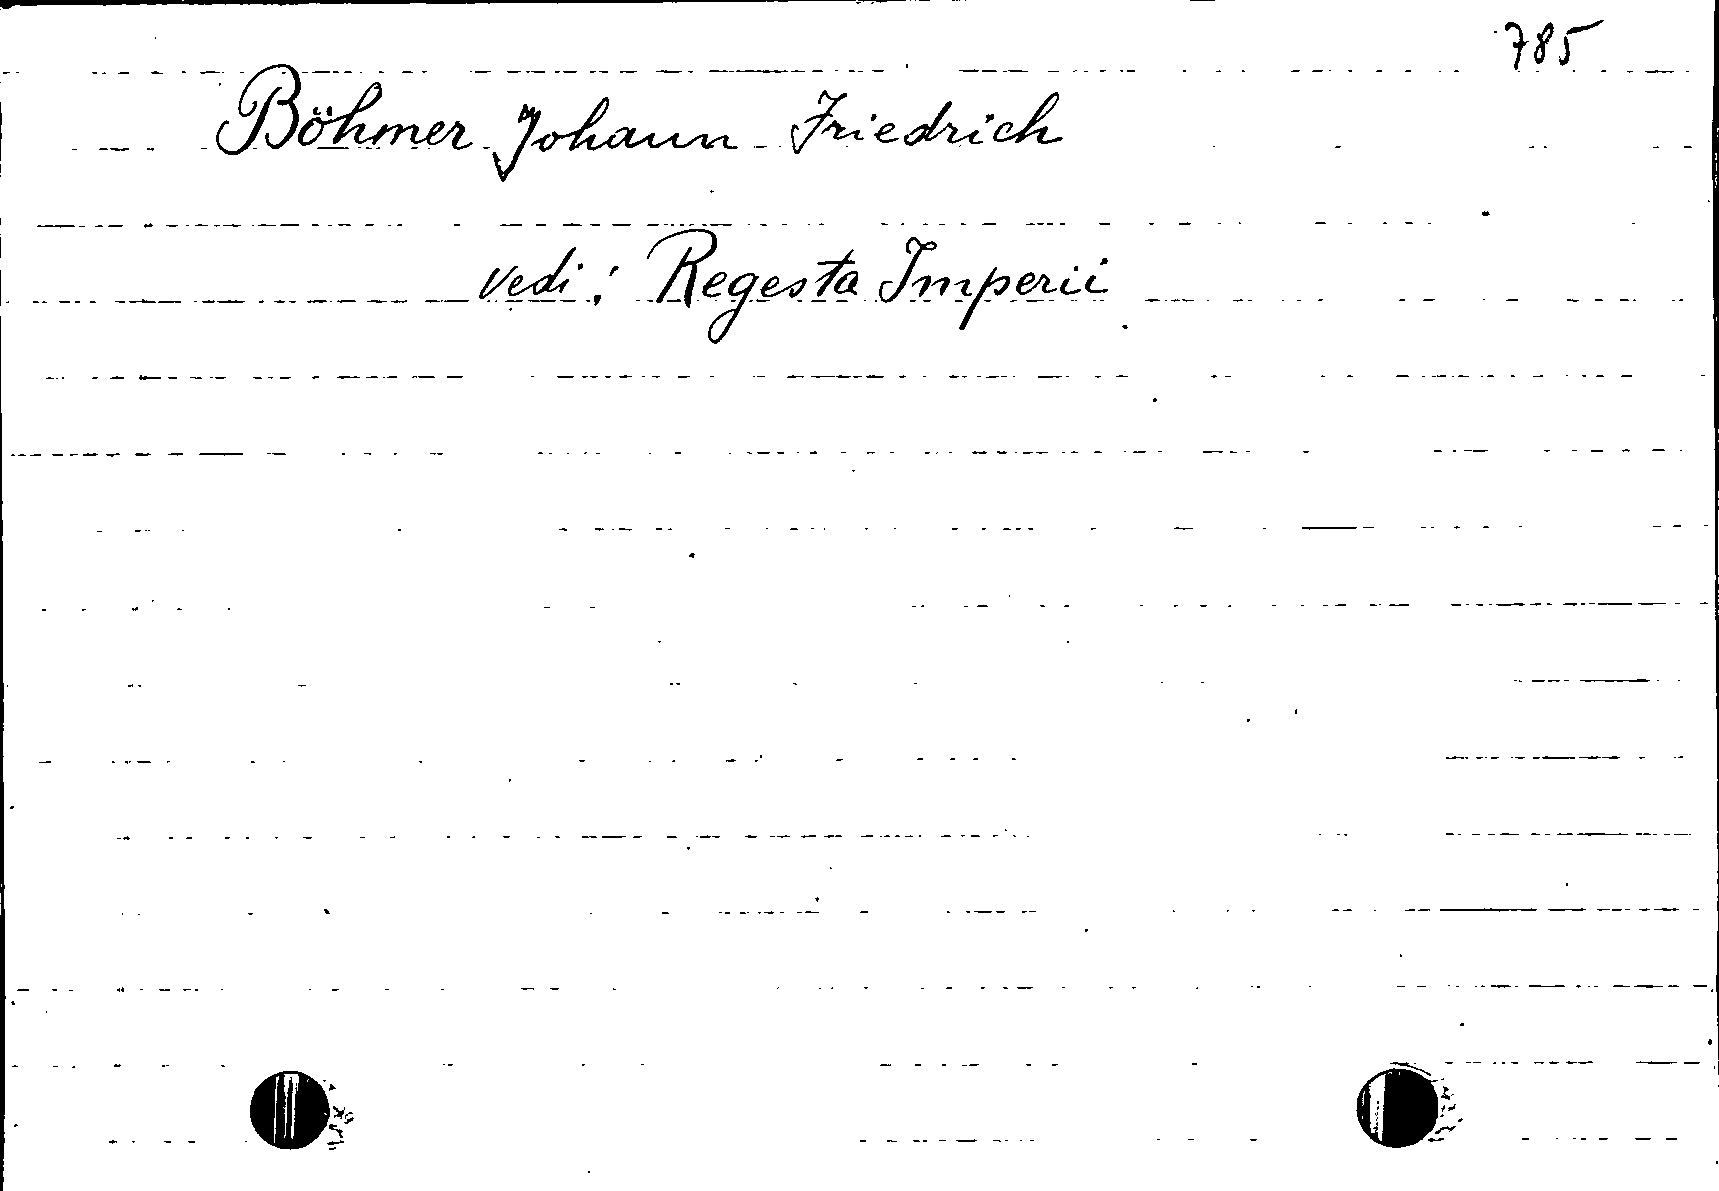 785
Böhmer Johann Friedrich
vedi: Regesta Imperii